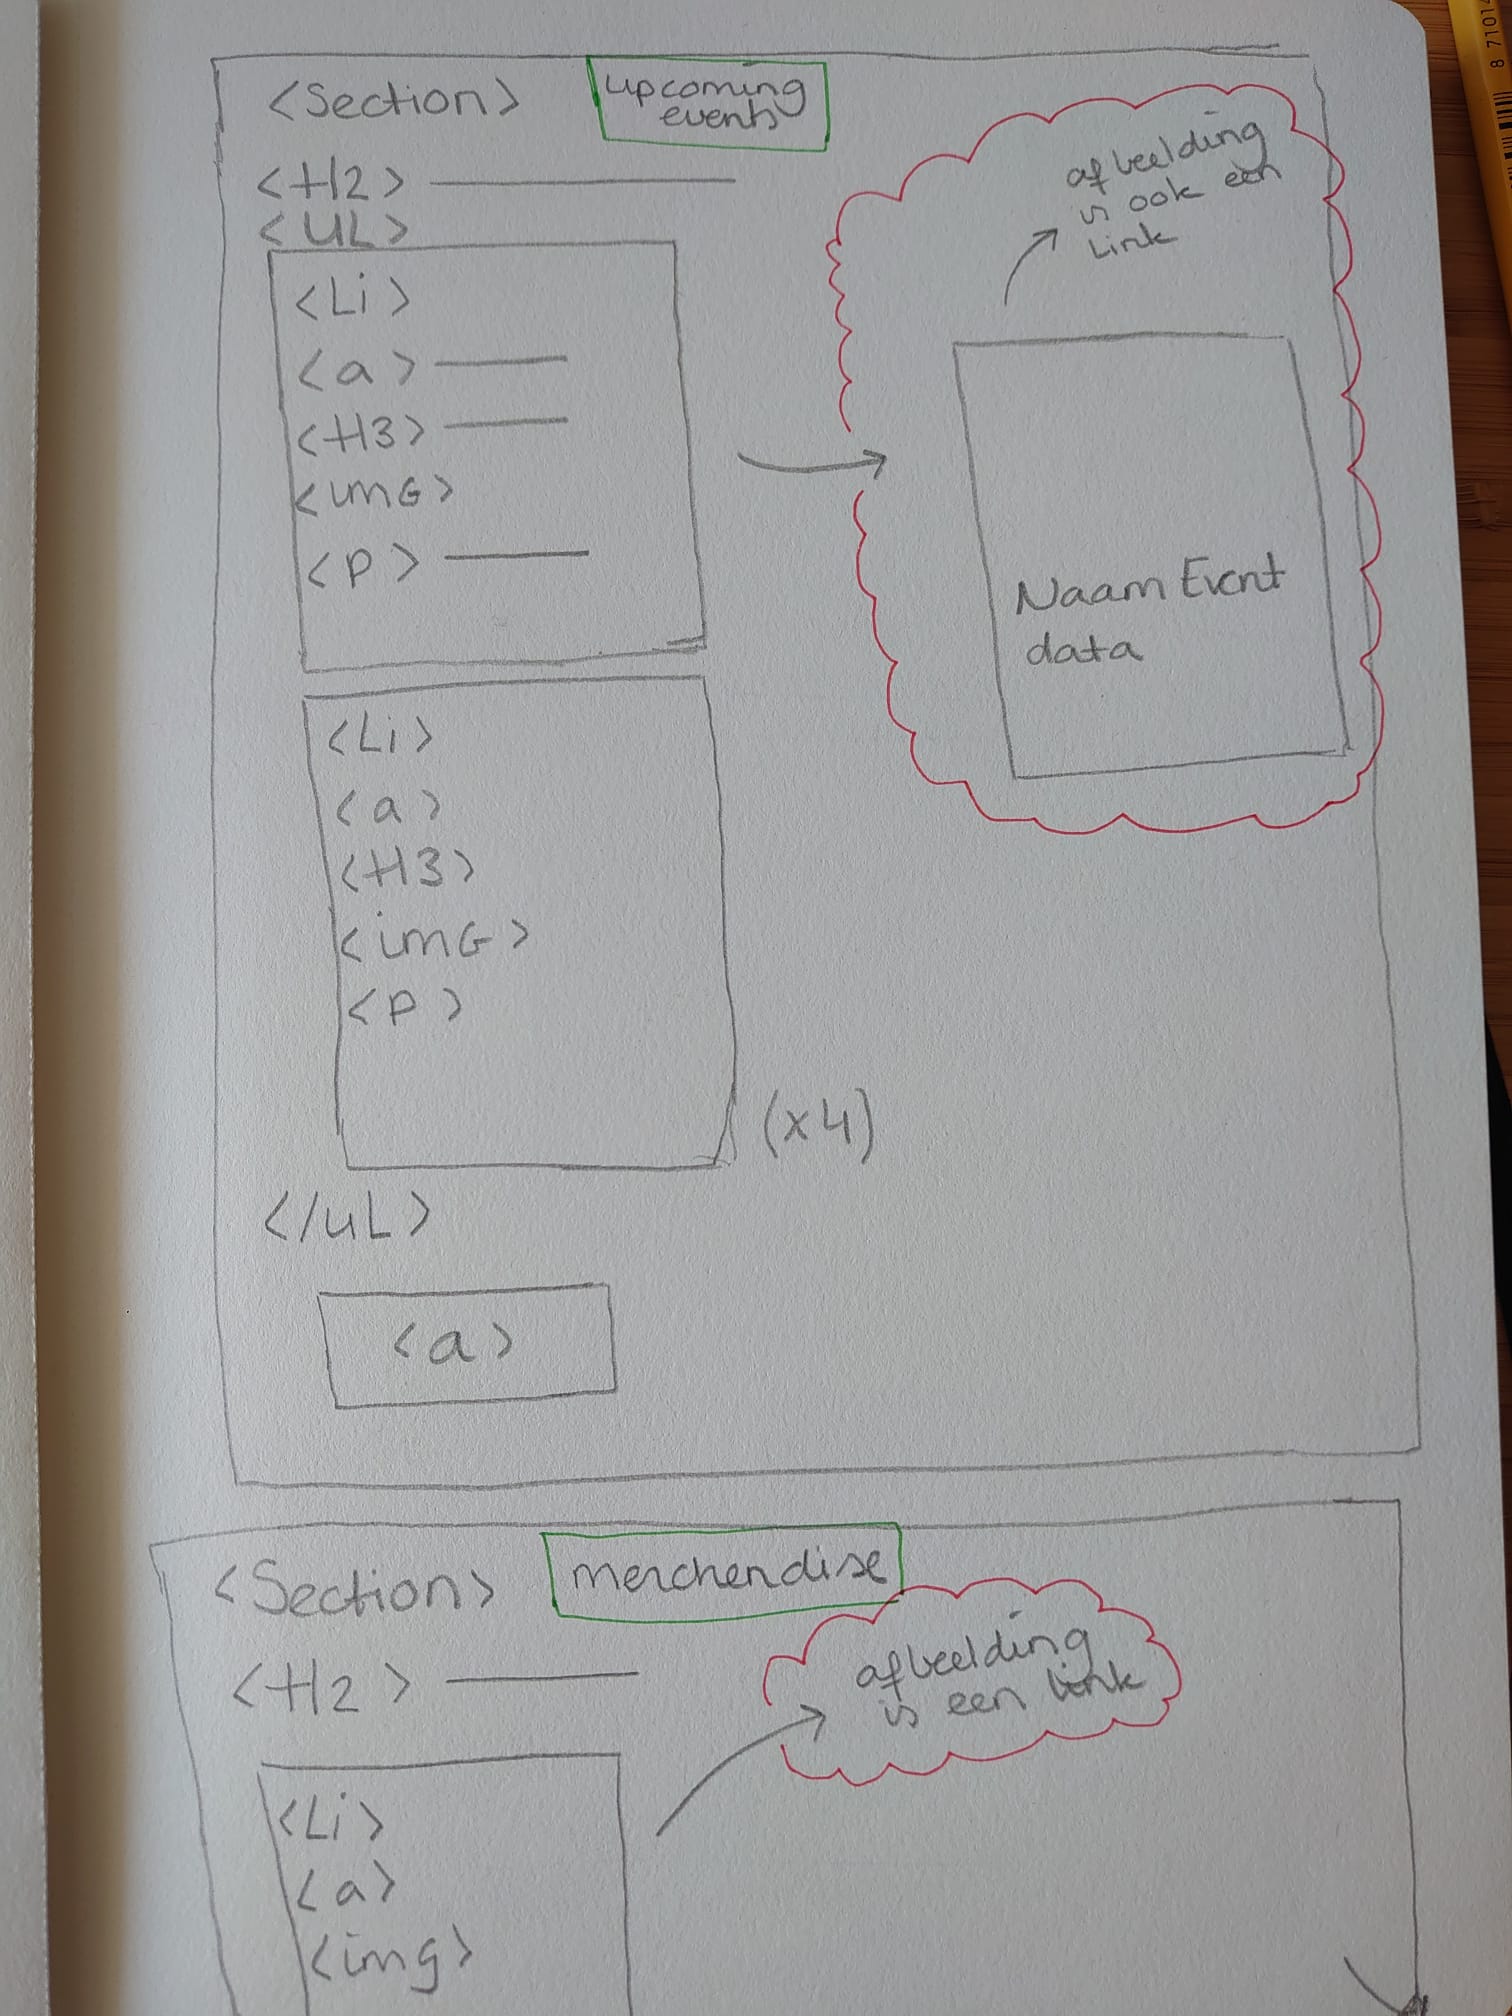 <Section>
upcoming
events
<H2>
<UL>
<Li>
<a>
<H3>
<imG>
<P>
afbeelding
is ook een
Link
Naam Event
data
<Li>
<a>
<H3>
<imG>
<P>
(x4)
</uL>
<a>
<Section>
merchendise
<H2>
afbeelding
is een link
<Li>
<a>
<img>